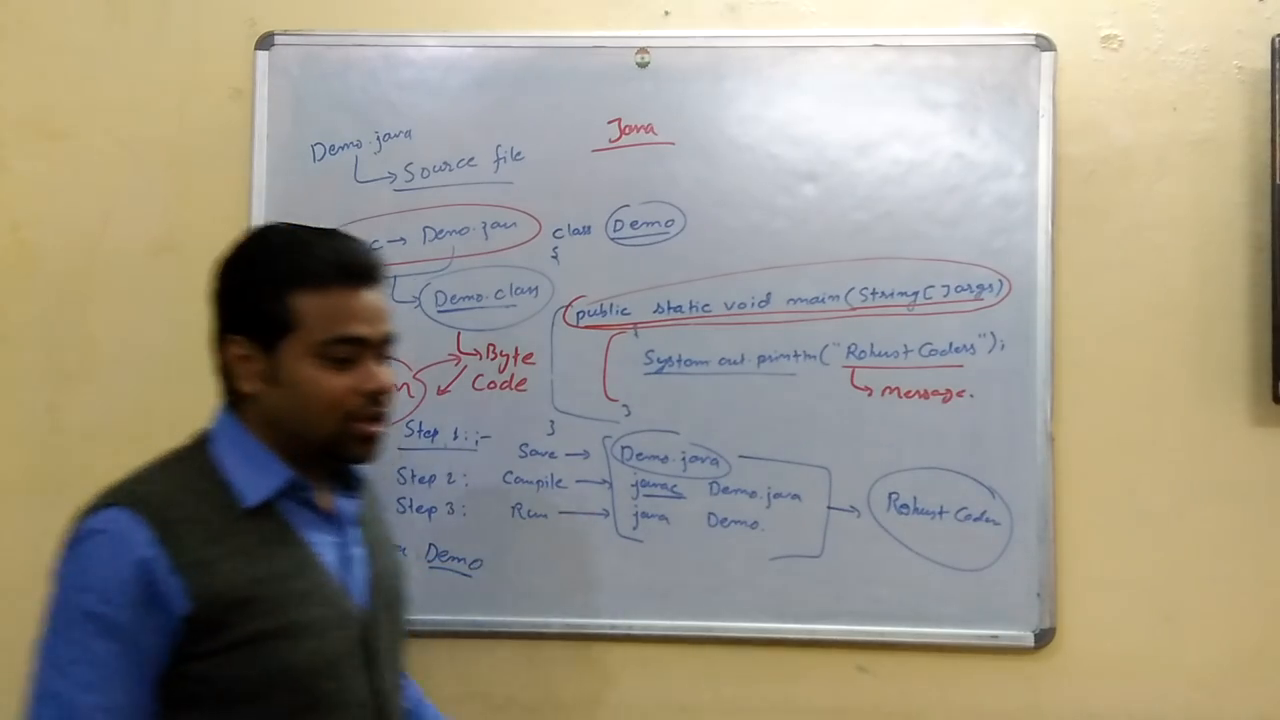 Java
Demo.java
Source file
c → Demo.java
Demo.class
Byte
Code
class Demo
{
public static void main(String[] args)
{
System.out.println("Robust Coders");
message.
}
}
Step 1:-
Save → Demo.java
Step 2: Compile → javac Demo.java
Step 3: Run → java Demo.
Robust Coders
Demo